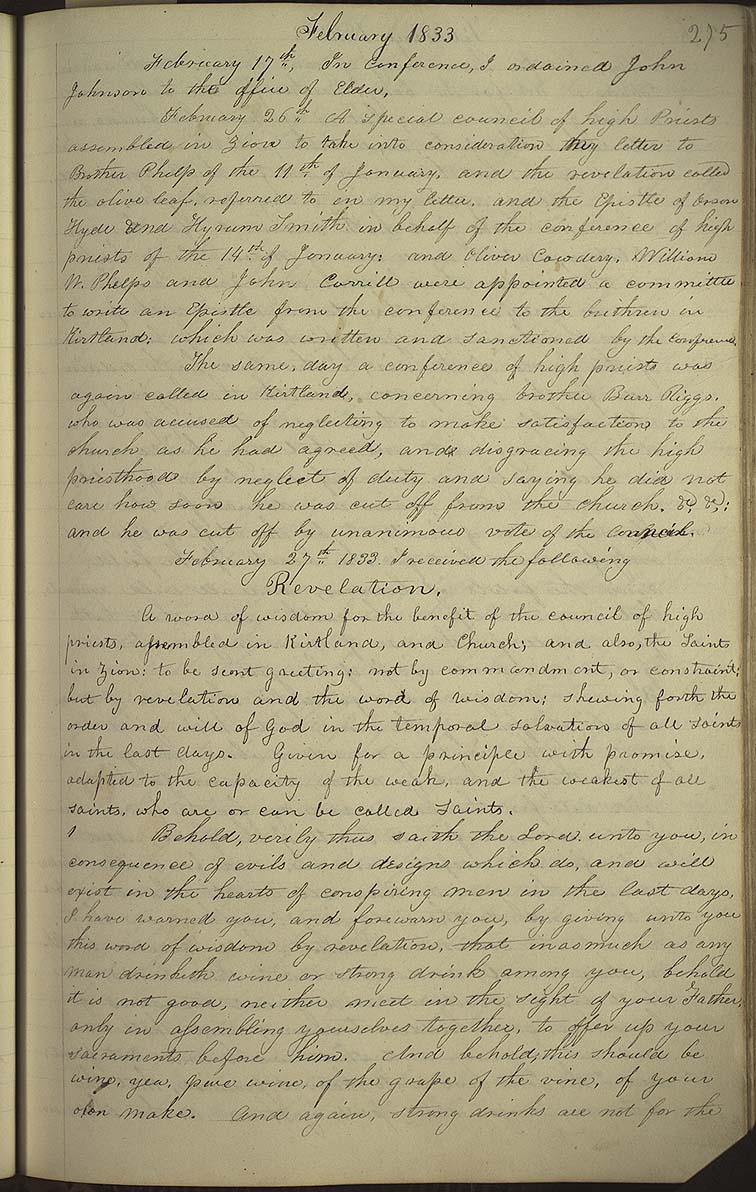 February 1833
275
February 17th, In conference, I ordained John
Johnson to the office of Elder,
February 26th A special council of high Priests
assembled in Zion to take into consideration my letter to
Brother Phelps of the 11th of January, and the revelation called
the olive leaf, referred to in my letter, and the Epistle of Orson
Hyde and Hyrum Smith in behalf of the conference of high
priests of the 14th of January; and Oliver Cowdery, William
W. Phelps and John Corrill were appointed a committee
to write an Epistle from the conference to the brethren in
Kirtland; which was written and sanctioned by the conference.
The same, day a conference of high priests was
again called in Kirtland, concerning brother Burr Riggs.
who was accused of neglecting to make satisfaction to the
church as he had agreed, and disgracing the high
priesthood by neglect of duty and saying he did not
care how soon he was cut off from the church. &c, &c,:
and he was cut off by unanimous vote of the council.
February 27th 1833. I received the following
Revelation.
A word of wisdom for the benefit of the council of high
priests, assembled in Kirtland, and Church; and also, the Saints
in Zion: to be sent greeting: not by commandment, or constraint;
but by revelation and the word of wisdom; shewing forth the
order and will of God in the temporal salvation of all saints
in the last days. Given for a principle with promise,
adapted to the capacity of the weak, and the weakest of all
saints, who are or can be called saints.
1 Behold, verily thus saith the Lord unto you, in
consequence of evils and designs which do, and will
exist in the hearts of conspiring men in the last days,
I have warned you, and forewarn you, by giving unto you
this word of wisdom by revelation, that inasmuch as any
man drinketh wine or strong drink among you, behold
it is not good, neither meet in the sight of your Father,
only in assembling yourselves together, to offer up your
sacraments before him. And behold, this should be
wine, yea, pure wine, of the grape of the vine, of your
own make. And again, strong drinks are not for the